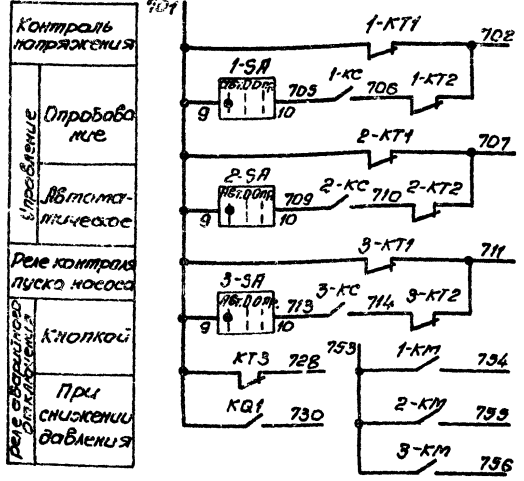 Контроль
напряжения
Управление
Опробова
ние
Автома-
тическое
Реле контроля
пуска насоса
Реле аварийного
отключения
Кнопкой
При
снижении
давления
701
1-КТ1
702
1-SA
Авт.О Опр.
9
10
705
1-КС
706
1-КТ2
2-КТ1
707
2-SA
Авт.О Опр.
9
10
709
2-КС
710
2-КТ2
3-КТ1
711
3-SA
Авт.О Опр.
9
10
713
3-КС
714
3-КТ2
КТ3
728
KQ1
730
753
1-КМ
754
2-КМ
755
3-КМ
756